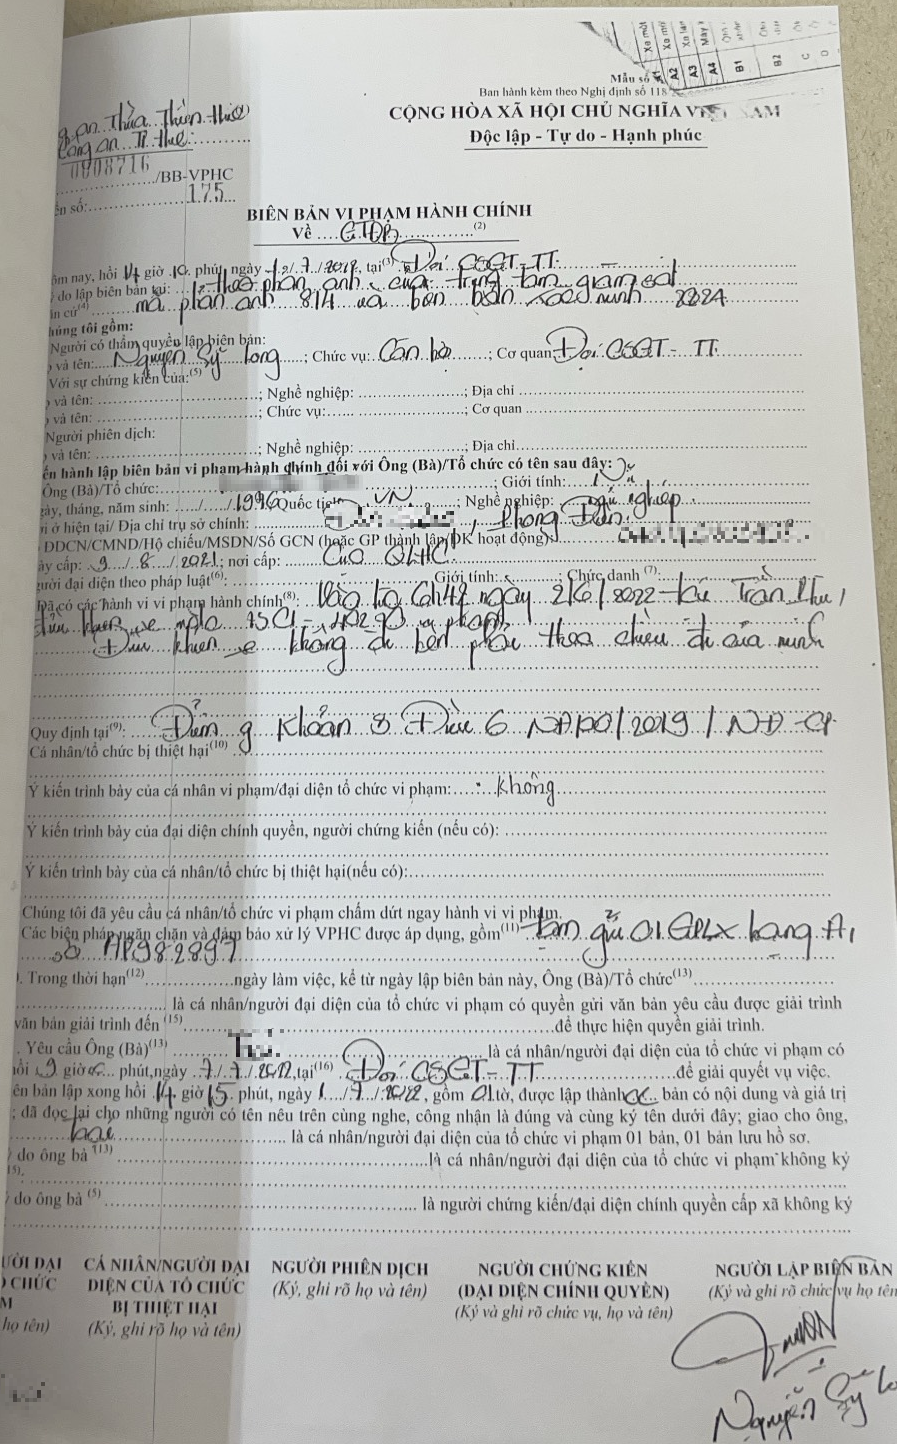 Mẫu số
Ban hành kèm theo Nghị định số 118
CỘNG HÒA XÃ HỘI CHỦ NGHĨA VIỆT NAM
Độc lập - Tự do - Hạnh phúc
A2
A3
A4
B1
B2
C
D
an Thừa Thiên Huế
Công an TP Huế
0008716
/BB-VPHC
ển số: 175
BIÊN BẢN VI PHẠM HÀNH CHÍNH
Về GTĐB (2)
ôm nay, hồi 14 giờ 10 phút, ngày tại(3) Đội CSGT-TT
do lập biên bản tại: theo phản ánh của trung tâm giám sát
n cứ(4) mã phản ánh 814 và biên bản xác minh
húng tôi gồm:
Người có thẩm quyền lập biên bản:
và tên: Nguyễn Sỹ Long; Chức vụ: Cán bộ; Cơ quan Đội CSGT-TT
Với sự chứng kiến của:(5)
và tên: ; Nghề nghiệp: ; Địa chỉ
và tên: ; Chức vụ: ; Cơ quan
Người phiên dịch:
và tên: ; Nghề nghiệp: ; Địa chỉ
ến hành lập biên bản vi phạm hành chính đối với Ông (Bà)/Tổ chức có tên sau đây:
Ông (Bà)/Tổ chức: ; Giới tính: Nữ
gày, tháng, năm sinh: / /1996 Quốc tịch VN ; Nghề nghiệp: nghiệp
ơi ở hiện tại/ Địa chỉ trụ sở chính: , Phong Điền
ĐDCN/CMND/Hộ chiếu/MSDN/Số GCN (hoặc GP thành lập/ĐK hoạt động):
ày cấp: 9/8/2021; nơi cấp: Cục QLHC
gười đại diện theo pháp luật(6): Giới tính: ; Chức danh (7):
Đã có các hành vi vi phạm hành chính(8): Vào lúc ngày 2/6/2022 tại Trần Phú,
điều khiển xe môtô vi phạm:
Điều khiển xe không đi bên phải theo chiều đi của mình
Quy định tại(9): Điểm g Khoản 3 Điều 6 NĐ 100/2019/NĐ-CP
Cá nhân/tổ chức bị thiệt hại(10)
Ý kiến trình bày của cá nhân vi phạm/đại diện tổ chức vi phạm: không
Ý kiến trình bày của đại diện chính quyền, người chứng kiến (nếu có):
Ý kiến trình bày của cá nhân/tổ chức bị thiệt hại(nếu có):
Chúng tôi đã yêu cầu cá nhân/tổ chức vi phạm chấm dứt ngay hành vi vi phạm.
Các biện pháp ngăn chặn và đảm bảo xử lý VPHC được áp dụng, gồm(11) tạm giữ 01 GPLX hạng A1
số AP982897
. Trong thời hạn(12) ngày làm việc, kể từ ngày lập biên bản này, Ông (Bà)/Tổ chức(13)
là cá nhân/người đại diện của tổ chức vi phạm có quyền gửi văn bản yêu cầu được giải trình
văn bản giải trình đến (15) để thực hiện quyền giải trình.
. Yêu cầu Ông (Bà)(13) là cá nhân/người đại diện của tổ chức vi phạm có
hồi 9 giờ phút, ngày 7/7/2022, tại(16) Đội CSGT-TT để giải quyết vụ việc.
ên bản lập xong hồi 14 giờ 15 phút, ngày 1/7/2022, gồm 01 tờ, được lập thành 02 bản có nội dung và giá trị
; đã đọc lại cho những người có tên nêu trên cùng nghe, công nhận là đúng và cùng ký tên dưới đây; giao cho ông,
là cá nhân/người đại diện của tổ chức vi phạm 01 bản, 01 bản lưu hồ sơ.
do ông bà (13) là cá nhân/người đại diện của tổ chức vi phạm không ký
do ông bà (5) là người chứng kiến/đại diện chính quyền cấp xã không ký
ƯỜI ĐẠI CÁ NHÂN/NGƯỜI ĐẠI NGƯỜI PHIÊN DỊCH NGƯỜI CHỨNG KIẾN NGƯỜI LẬP BIÊN BẢN
CHỨC DIỆN CỦA TỔ CHỨC (Ký, ghi rõ họ và tên) (ĐẠI DIỆN CHÍNH QUYỀN) (Ký và ghi rõ chức vụ họ tên
M BỊ THIỆT HẠI (Ký và ghi rõ chức vụ, họ và tên)
họ tên) (Ký, ghi rõ họ và tên)
Nguyễn Sỹ